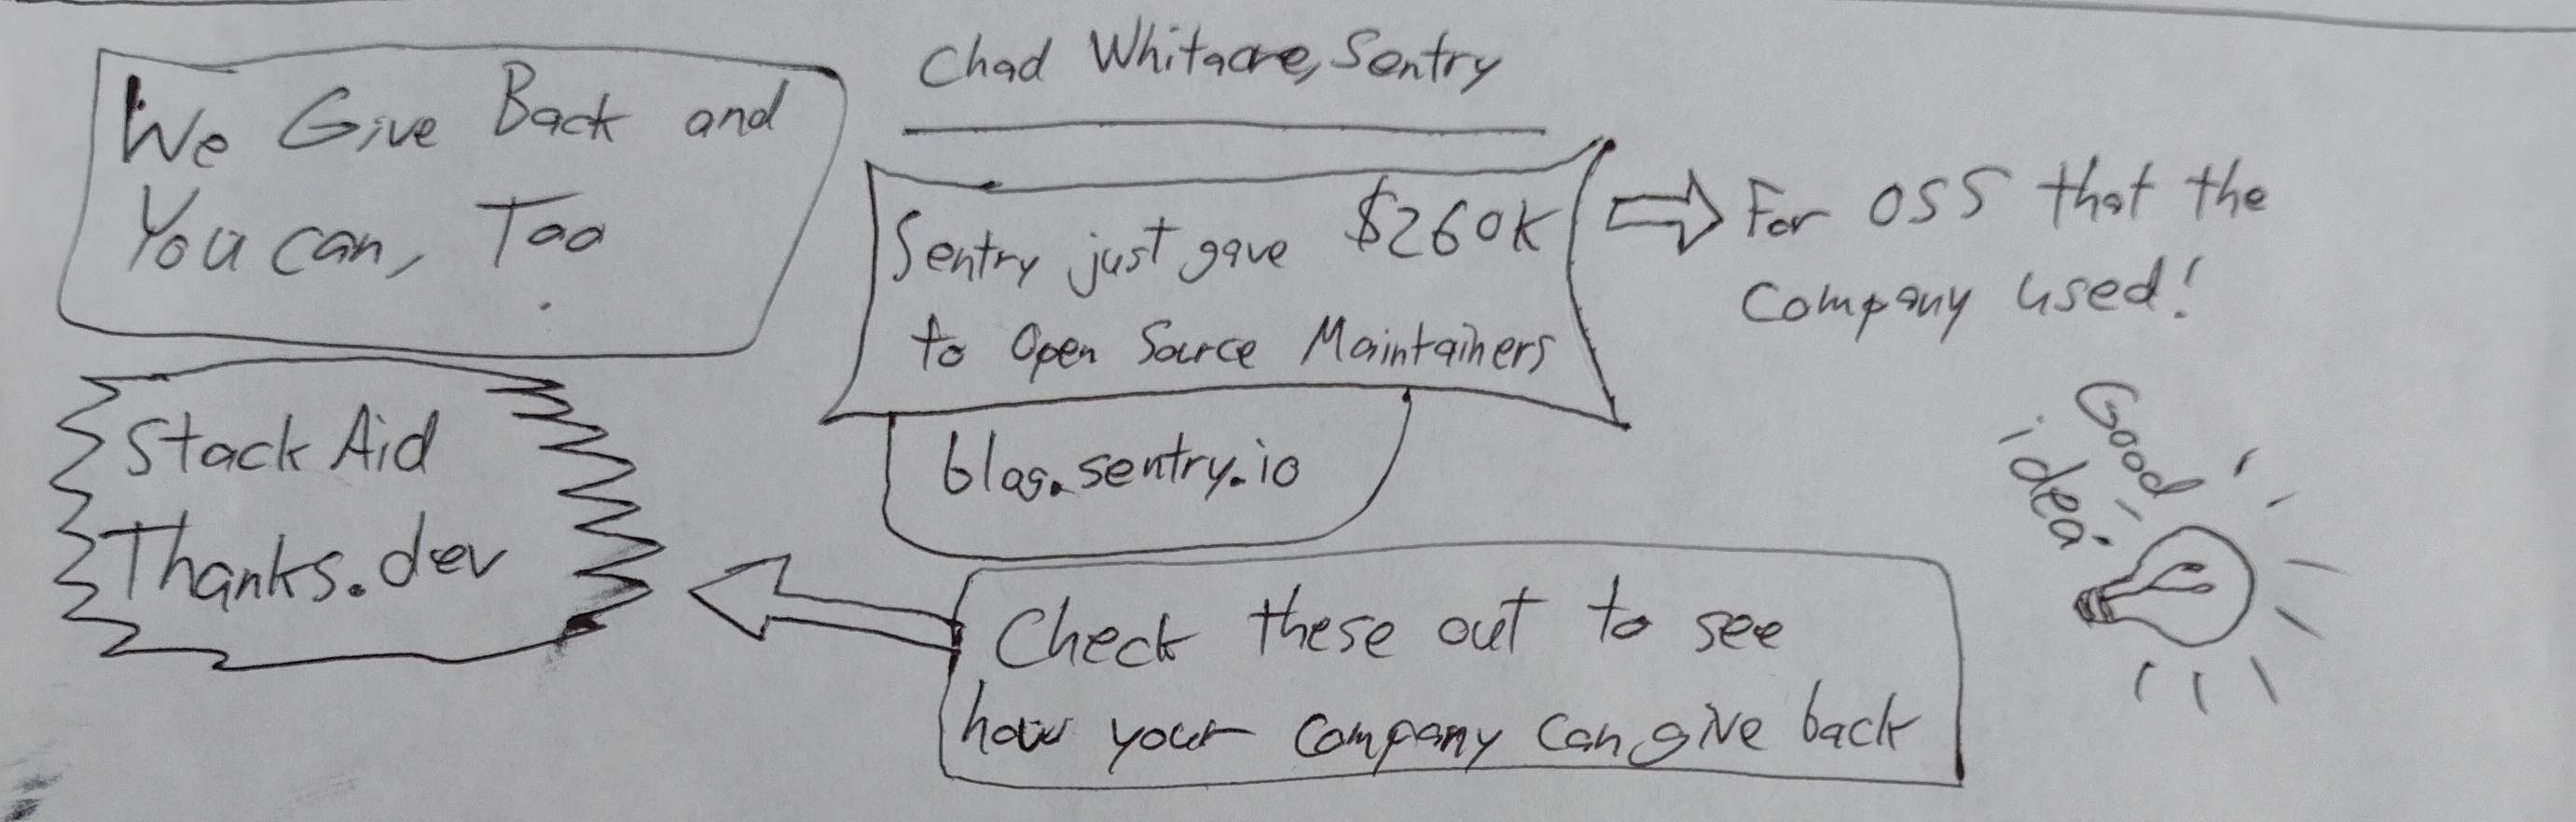 We Give Back and
You can, Too
Chad Whitacre, Sentry
Sentry just gave $260K
to Open Source Maintainers
For OSS that the
Company used!
blog.sentry.io
Stack Aid
Thanks.dev
Check these out to see
how your company can give back
Good
idea